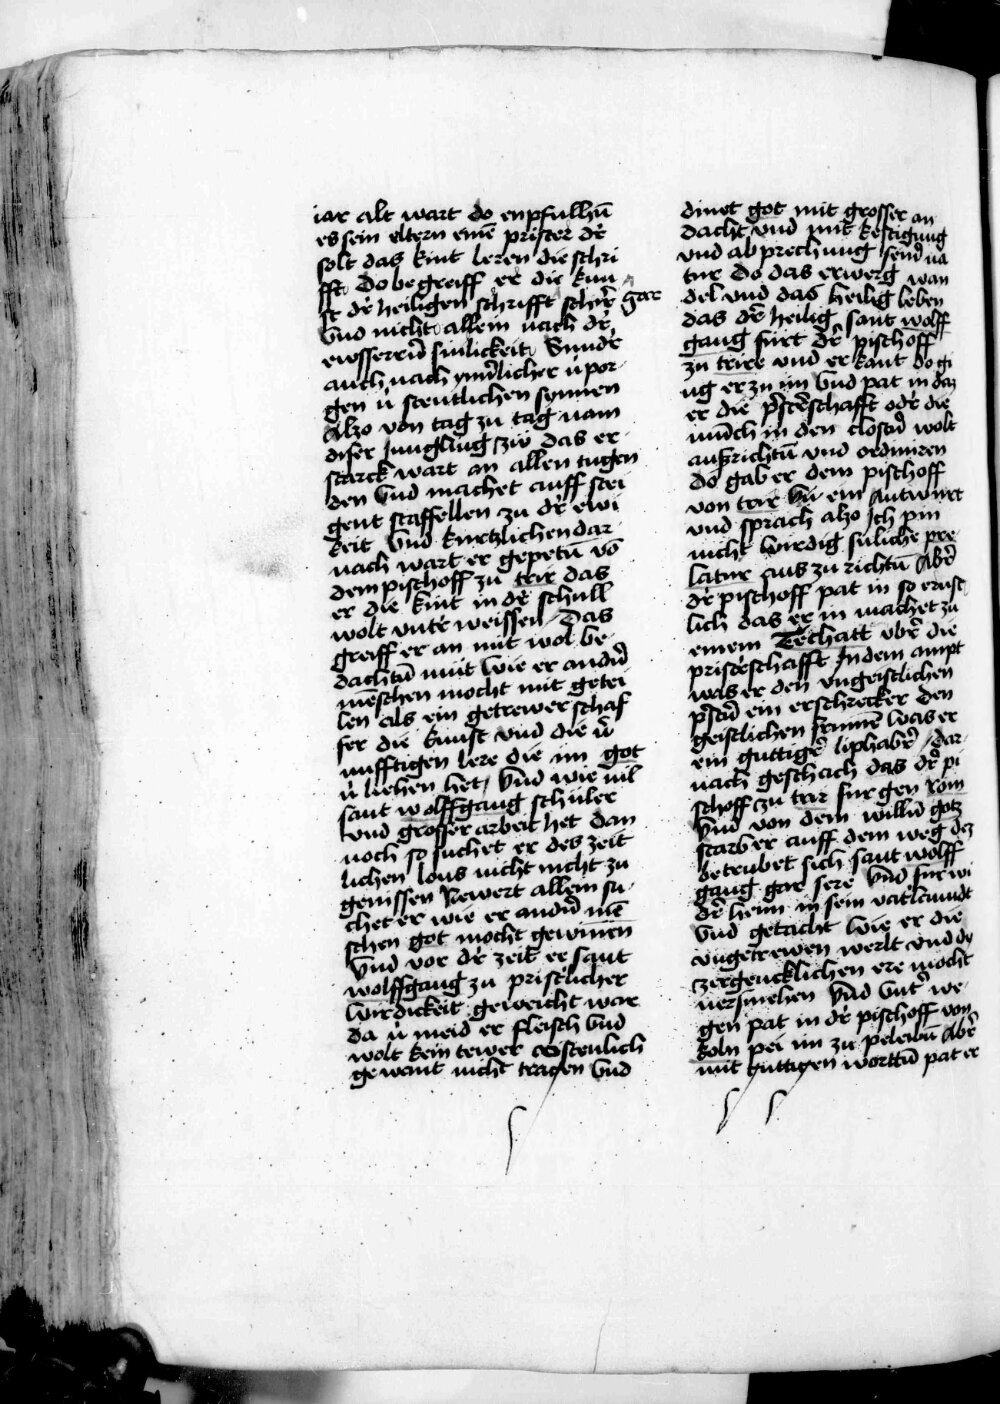 iar alt wart do enpfulhn̄
es sein eltern einē prister dē
solt das kint leren die schri
fft do begreiff er die kun
st dē heiligen schrifft schīr gar
Vnd nicht allein nach dē
ewsserrīd sinlickeit Sundē
auch nach ynn̄licher ūpor
gen ū stentlichen synnen
Alzo von tag zu tag nam
diser Jungling ziv das er
starck wart an allen tugen
den Vnd machet auff stei
gent staffellen zu dē ewi
keit Vnd kurtzlichen dar
nach wart er gepetn̄ vō
dem pischoff zu trir das
er die kint in dē schull
wolt vntē weissen / Das
greiff er an mit wol be
dachtn̄ mūt wie er andn̄
mēschen mocht mit getei
len als ein getrewer schaf
fer die kunst vnd die ū
nufftigen lere die im got
ū lieben het / Vnd wie uil
sant wolffgang schuler
Vnd grosser arbeit het dan
noch so suchet er des zeit
lichen lons nicht nicht zu
genissen Newert allein su
chet er wie er andn̄ mē
schen got mocht gewinen
Vnd vor dē zeit er sant
wolffgang zu pristlicher
wirdickeit geweicht war
da ū meid er fleisch Vnd
wolt kein tewer costenlich
gewant nicht tragen Vnd
dinet got mit grosser an
dacht vnd mit kestigung
vnd ab prechung seind na
tur Do das erwerg wan
del vnd das heilig leben
das dē heilig sant wolff
gang furt dē pischoff
zu trire vnd er kant do gi
ng er zu im Vnd pat in daz
er die p̄sterschafft odē die
mūch in den closrn̄ wolt
außrichtn̄ vnd ordiniren
do gab er dem pischoff
von trir Vn̄ ein Antwurt
vnd sprach alzo Ich pin
nicht wirdig suliche pre
latur aus zu richtn̄ Abē
dē pischoff pat in so ernst
lich das er in machet zu
einem Techatt vbē die
pristēschafft Indem ampt
was er den vngeistlichen
p̄strn̄ ein erschrecker den
geistlichen frumē was er
ein guttigē liphabē / dar
nach geschach das dē pi
schoff zu trir fur gen Rom
Vnd von dem willn̄ gotz
starb er auff dem weg dez
betrubet sich sant wolff
gang gar sere Vnd fur wi
dē heim in sein vatlaundt
Vnd getracht wie er die
vngetrewen werlt vnd dy
zergencklichen ere mocht
uersmehen Vnd Vntē we
gen pat in dē pischoff von
koln pei im zu peleibn̄ Abē
mit guttigen worttn̄ pat er